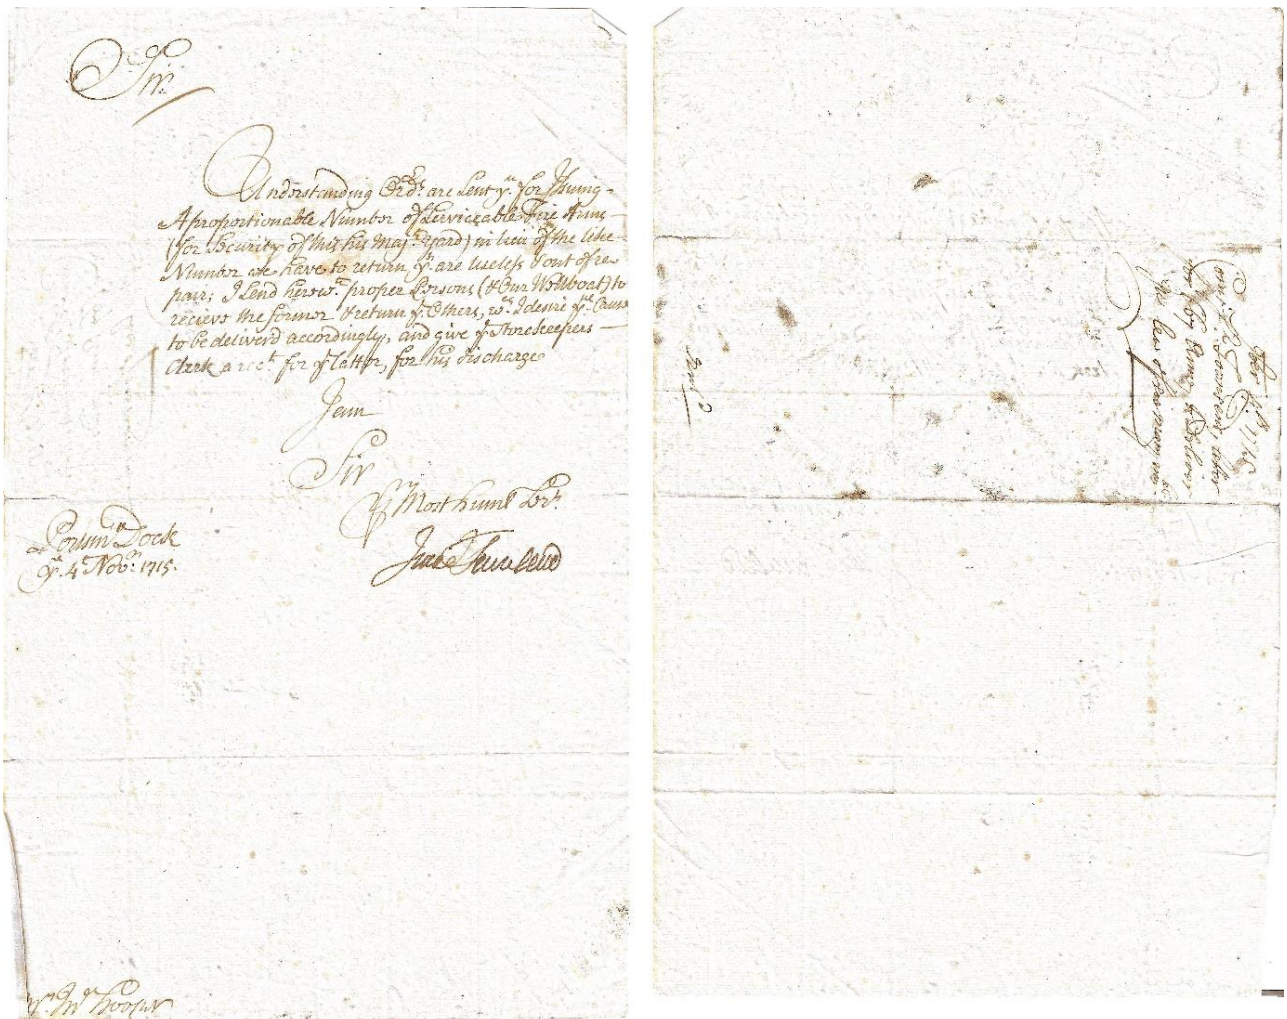 Sir.
Understanding Ordrs. are sent yu. for Issuing
A proportionable Number of Serviceable Fire Arms
(for Security of this his Majts. Yard) in lieu of the like
Number we have to return, yt. are useless & out of re
pair; I send herewth. proper Persons (& Our Wellboat) to
recieve the former & return ye. Others, wch. I desire yu. Cause
to be deliverd accordingly, and give ye. Storekeepers
Clerk a rect. for ye latter, for his discharge
I am
Sir
Yr. Most humb Servt.
Isaac Townsend
Portsmo. Dock
ye. 4th. Novr. 1715.
Mr. Jno. Hooper
Novr. ye. 1715
Comr. Townsend, letter
for Arms, & deliver